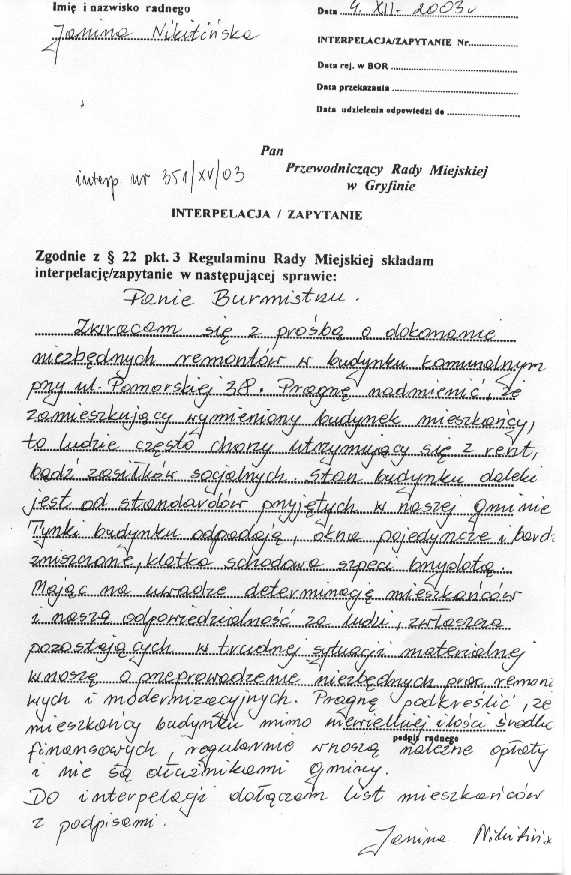 Imię i nazwisko radnego
Janina Nikitińska
Data 4. XII- 2003r
INTERPELACJA/ZAPYTANIE Nr
Data rej. w BOR
Data przekazania
Data udzielenia odpowiedzi do
Pan
Przewodniczący Rady Miejskiej
w Gryfinie
interp nr 351/XV/03
INTERPELACJA / ZAPYTANIE
Zgodnie z § 22 pkt. 3 Regulaminu Rady Miejskiej składam
interpelację/zapytanie w następującej sprawie:
Panie Burmistrzu.
Zwracam się z prośbą o dokonanie
niezbędnych remontów w budynku komunalnym
przy ul. Pomorskiej 38. Pragnę nadmienić, że
zamieszkujący wymieniony budynek mieszkańcy,
to ludzie często chorzy utrzymujący się z rent,
bądź zasiłków socjalnych. Stan budynku daleki
jest od standardów przyjętych w naszej gminie
Tynki budynku odpadają, okna pojedyncze i bard
zniszczone, klatka schodowa szpeci brzydotą.
Mając na uwadze determinację mieszkańców
i naszą odpowiedzialność za ludzi, zwłaszcza
pozostających w trudnej sytuacji materialnej
wnoszę o przeprowadzenie niezbędnych prac remon
wych i modernizacyjnych. Pragnę podkreślić, że
mieszkańcy budynku mimo niewielkiej ilości środkó
podpis radnego
finansowych, regularnie wnoszą należne opłaty
i nie są dłużnikami gminy.
Do interpelacji dołączam list mieszkańców
z podpisami.
Janina Nikitińs